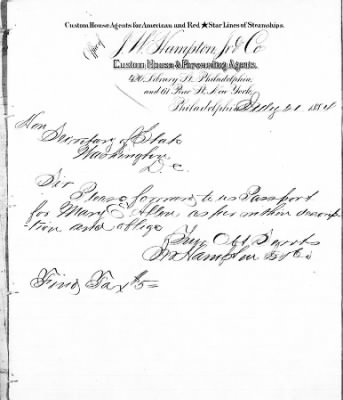 Custom House Agents for American and Red ★ Star Lines of Steamships.
Office of
J. W. Hampton, Jr. & Co
Custom House & Forwarding Agents.
420, Library St. Philadelphia,
and 61 Pine St. New York.
Philadelphia, July 21 1884
Hon
Secretary of State
Washington
D.C.
Sir
Please forward to us Passport
for Mary E. Allen as per within descrip
tion and oblige
Obt Servts
J W Hampton Jr & Co
Find Tax $5=